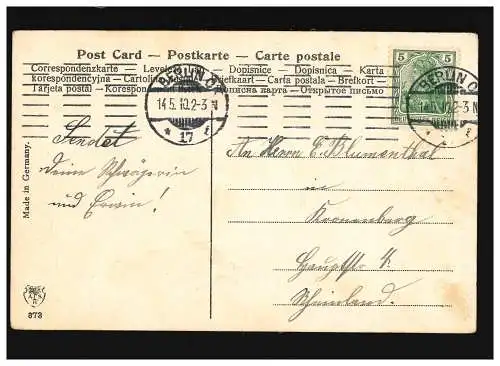 Post Card – Postkarte – Carte postale
Correspondenzkarte — Dopisnice — Dopisnica — Karta
korespondencyjna — Cartolina — Briefkaart — Carta postala — Brefkort
Tarjeta postal — Открытое письмо
5 5
BERLIN C
14.5.10.2-3 N
* 17 t
BERLIN C
14.5.10.2-3 N
Sendet
Deine Schwägerin
und Erwin!
An Herrn E. Blumenthal
in
Kronenberg
Hauptstr.
Rheinland.
Made in Germany.
373